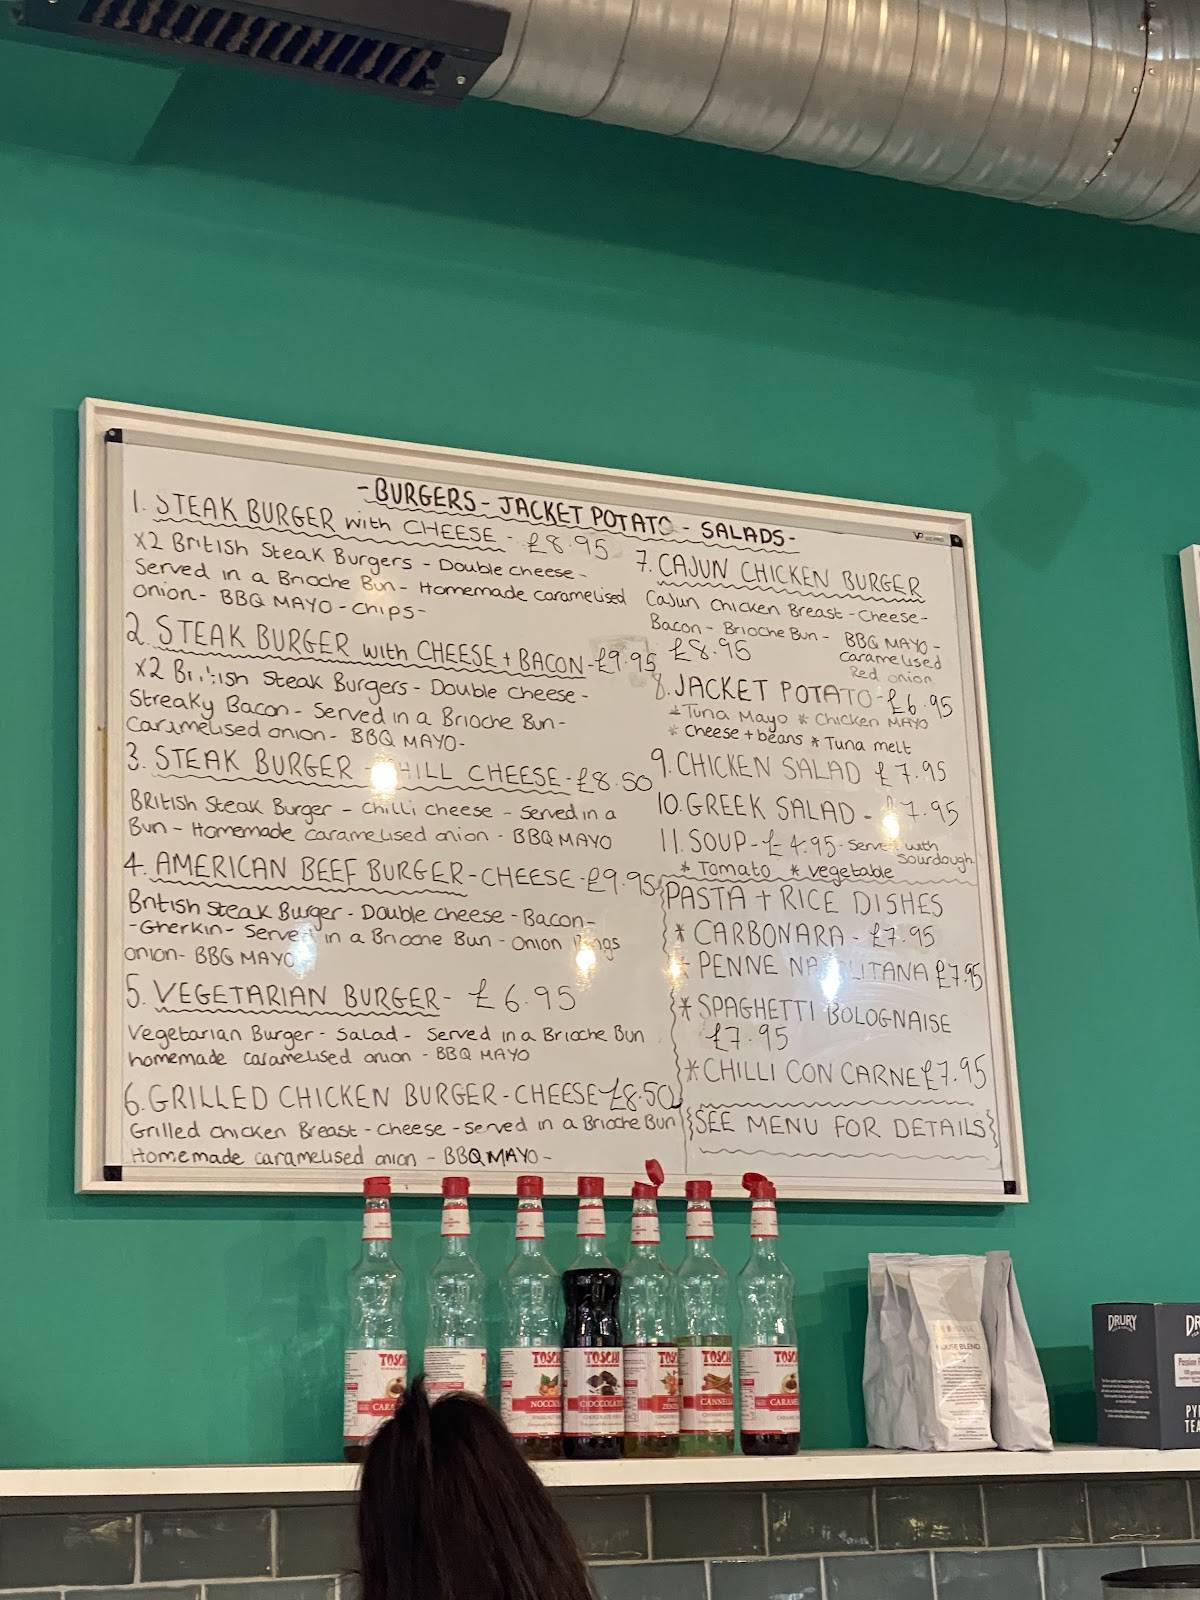 -BURGERS-JACKET POTATO-SALADS-
1. STEAK BURGER with CHEESE - £8.95
x2 British Steak Burgers - Double cheese -
Served in a Brioche Bun - Homemade caramelised
onion - BBQ MAYO - chips -
2. STEAK BURGER with CHEESE + BACON - £9.95
x2 British Steak Burgers - Double cheese -
Streaky Bacon - Served in a Brioche Bun -
Caramelised onion - BBQ MAYO -
3. STEAK BURGER - CHILLI CHEESE - £8.50
British Steak Burger - Chilli cheese - Served in a
Bun - Homemade caramelised onion - BBQ MAYO
4. AMERICAN BEEF BURGER - CHEESE - £9.95
British Steak Burger - Double cheese - Bacon -
- Gherkin - Served in a Brioche Bun - Onion Rings
onion - BBQ MAYO
5. VEGETARIAN BURGER - £6.95
Vegetarian Burger - Salad - Served in a Brioche Bun
homemade caramelised onion - BBQ MAYO
6. GRILLED CHICKEN BURGER - CHEESE £8.50
Grilled chicken Breast - cheese - served in a Brioche Bun
Homemade caramelised onion - BBQ MAYO -
7. CAJUN CHICKEN BURGER
Cajun Chicken Breast - Cheese -
Bacon - Brioche Bun - BBQ MAYO -
£8.95 caramelised
Red onion
8. JACKET POTATO - £6.95
* Tuna Mayo * Chicken MAYO
* Cheese + beans * Tuna melt
9. CHICKEN SALAD £7.95
10. GREEK SALAD - £7.95
11. SOUP - £4.95 - Served with
sourdough
* Tomato * Vegetable
PASTA + RICE DISHES
* CARBONARA - £7.95
* PENNE NAPOLITANA £7.95
* SPAGHETTI BOLOGNAISE
£7.95
* CHILLI CON CARNE £7.95
SEE MENU FOR DETAILS
TOSCHI
TOSCHI
TOSCHI
TOSCHI
TOSCHI
NOCCIOLA
CIOCCOLATO
CANNELLA
HOUSE BLEND
DRURY